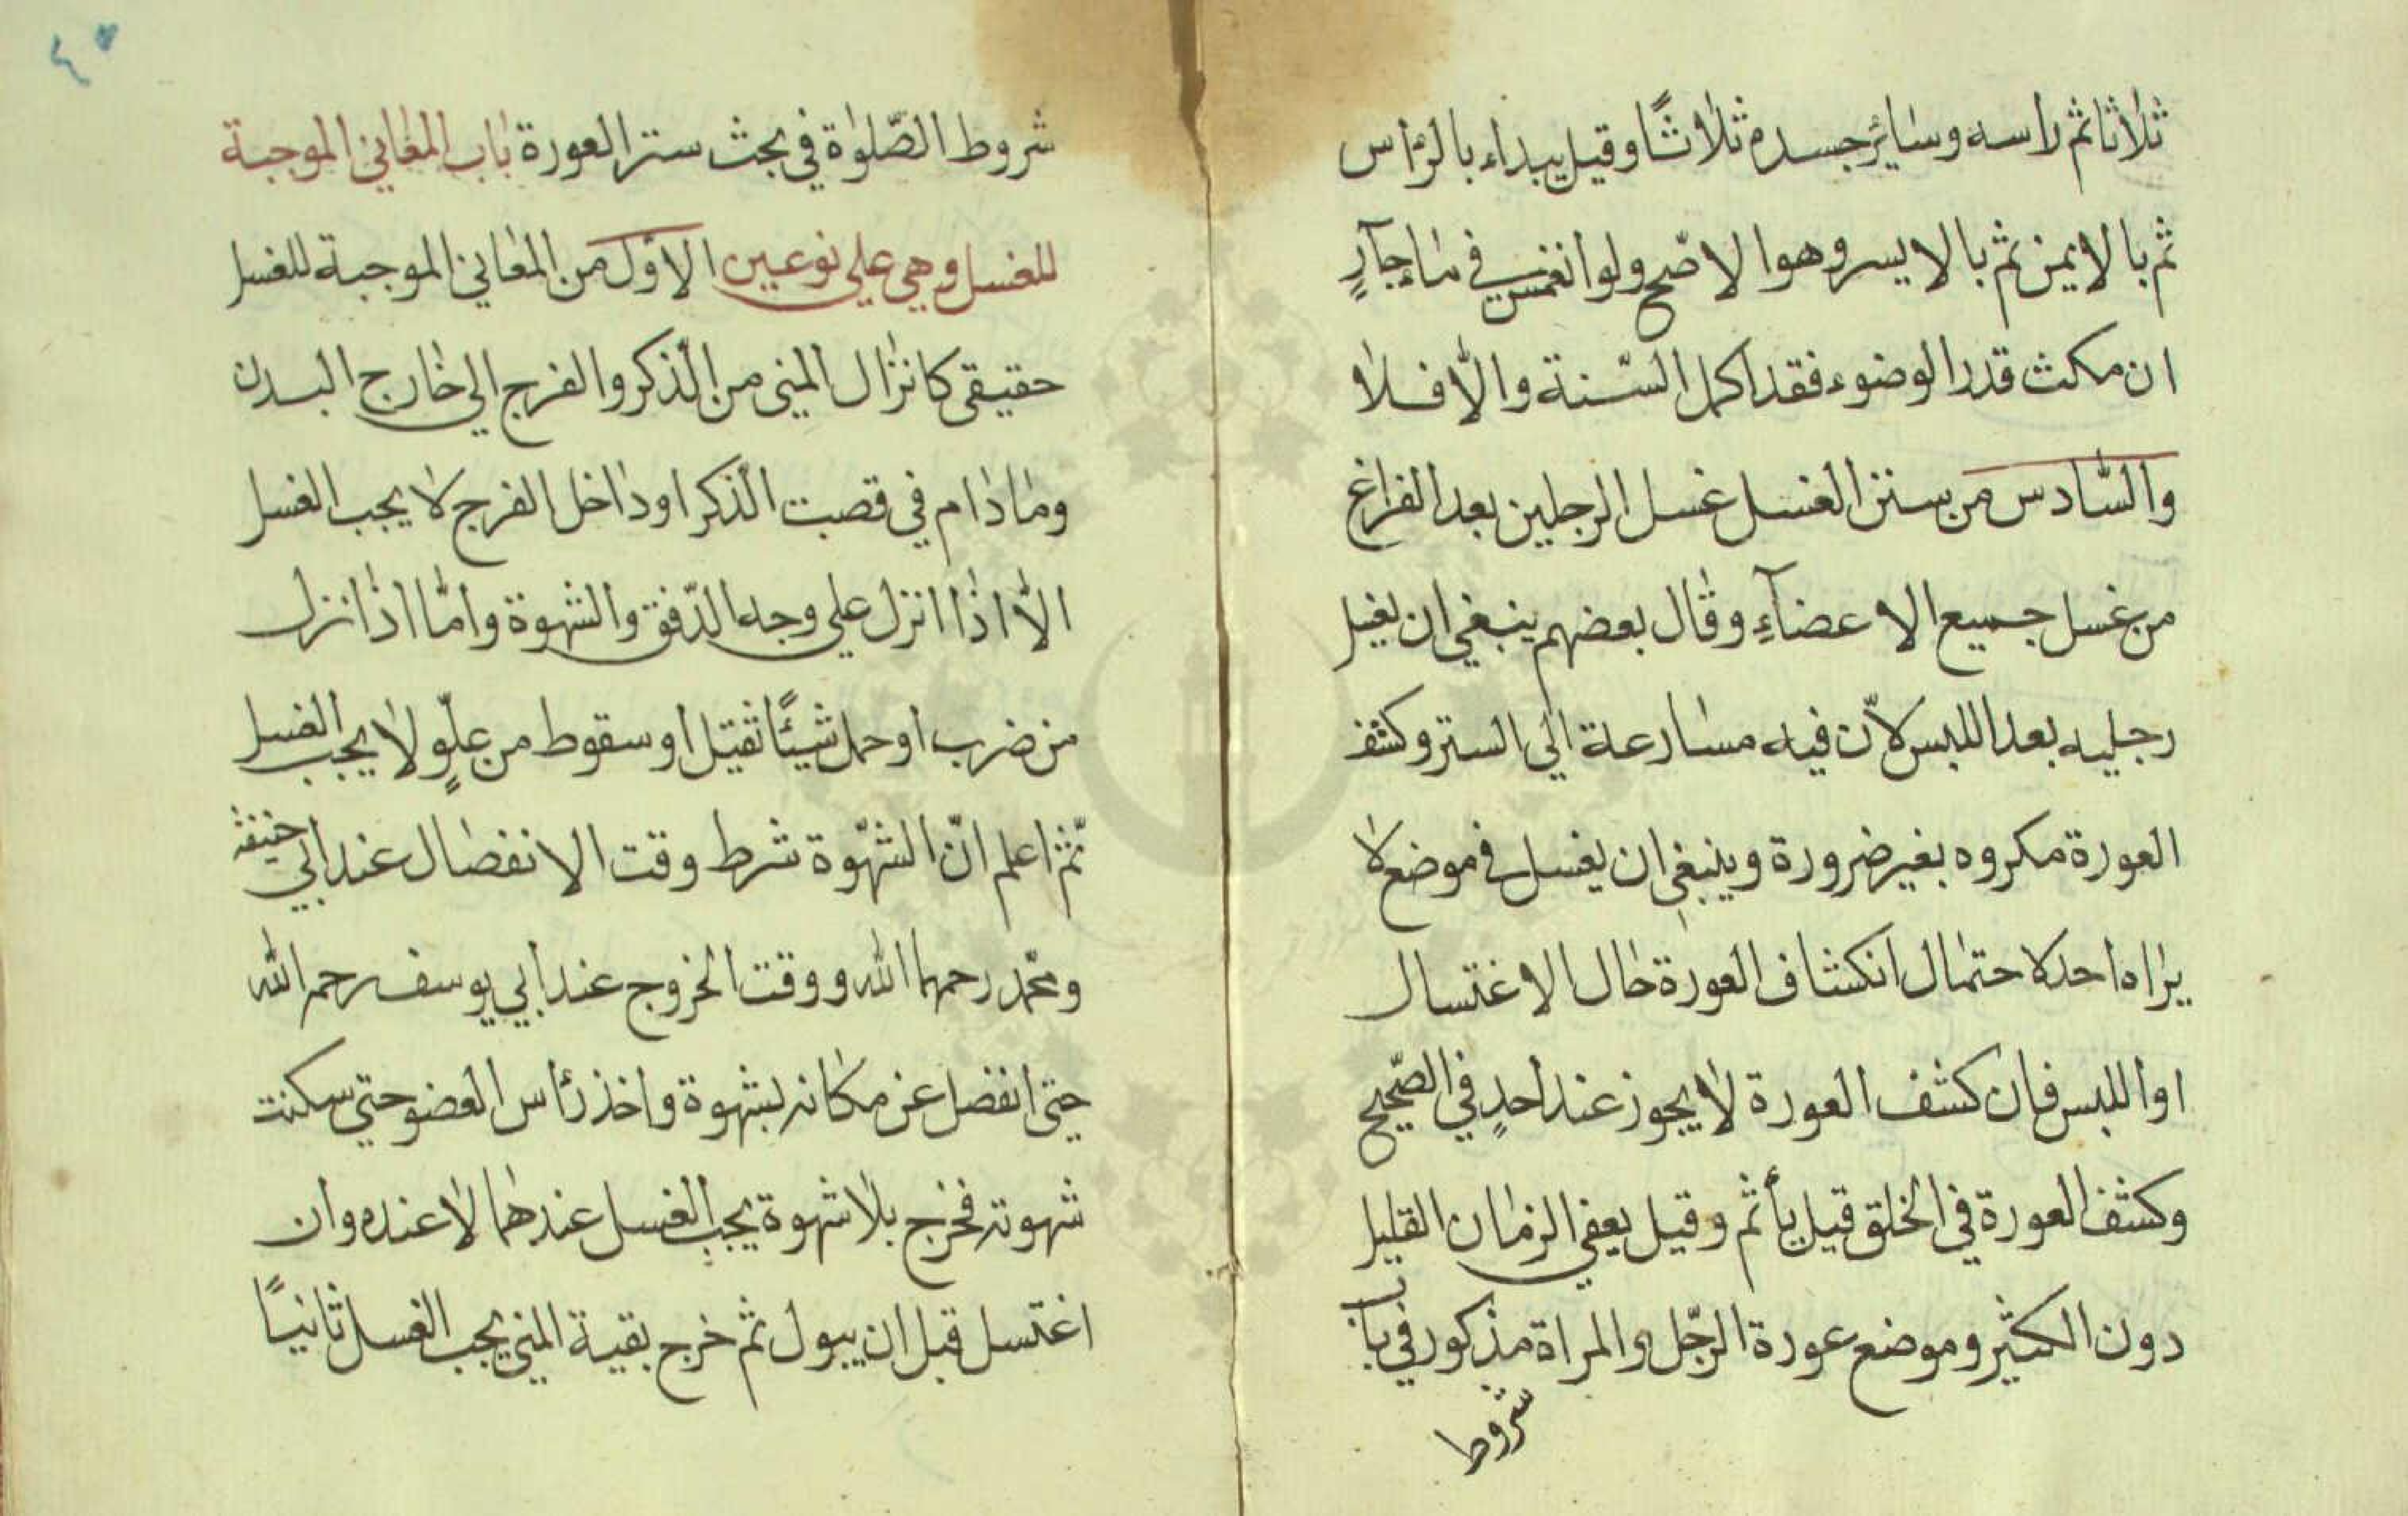 ثلاثا ثم راسه وسائر جسده ثلاثًا وقيل يبداء بالرٔاس
ثم بالايمن ثم بالايسر وهوا لاصّح ولو انغمس في مٰاء جآرٍ
ان مكث قدر الوضوء فقد اكمل السّنة والّا فلا
والسّادس من سنن الغسل غسل الرجلين بعد الفراغ
من غسل جميع الاعضآءِ وقال بعضهم ينبغي ان يغسل
رجليه بعد اللبس لانّ فيه مسارعة الي الستر وكشف
العورة مكروه بغير ضرورة وينبغي ان يغسل في موضع لا
يراه احد لاحتمال انكشاف العورة حال الاغتسال
او اللبس فان كشف العورة لا يجوز عند احدٍ في الصّحيح
وكشف العورة في الخلق قيل يأثم وقيل يعفي الزمان القليل
دون الكثير وموضع عورة الرّجل والمراة مذكور في باب
شروط
٤٧
شروط الصّلوٰة في بحث ستر العورة باب المعاني الموجبة
للغسل وهي علي نوعين الاوّل من المعاني الموجبة للغسل
حقيقي كانزال المني من الذّكر والفرج الي خارج البدن
وما دام في قصبت الذّكر او داخل الفرج لا يجب الغسل
الّا اذا انزل علي وجه الدّفق والشهوة وامّا اذا نزل
من ضرب او حمل شيئًا ثقيل او سقوط من علوٍّ لا يجب الغسل
ثمّ اعلم انّ الشهّوة شرط وقت الانفصال عند ابي حنيفه
ومحمّد رحمهما الله ووقت الخروج عند ابي يوسف رحمه الله
حتي انفصل عن مكانه بشهوة واخذ رٔاس العضو حتي سكنت
شهوته فخرج بلا شهوة يجب الغسل عندهما لا عنده وان
اغتسل قبل ان يبول ثم خرج بقية المني يجب الغسل ثانيًا